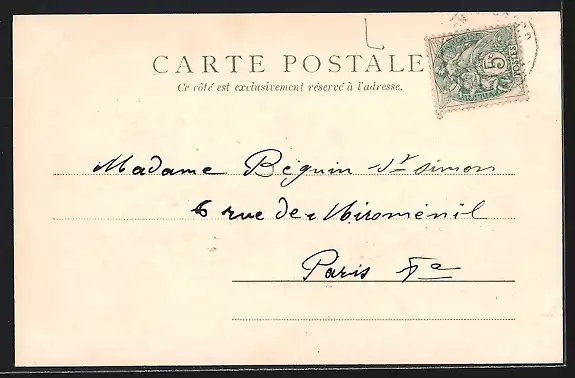 CARTE POSTALE
Ce côté est exclusivement réservé à l'adresse.
5
POSTES
Madame Béguin St Simon
6 rue de Miroménil
Paris